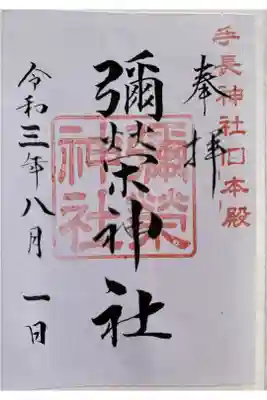 手長神社 本殿
奉拝
彌榮神社
彌榮
神社
令和三年八月一日